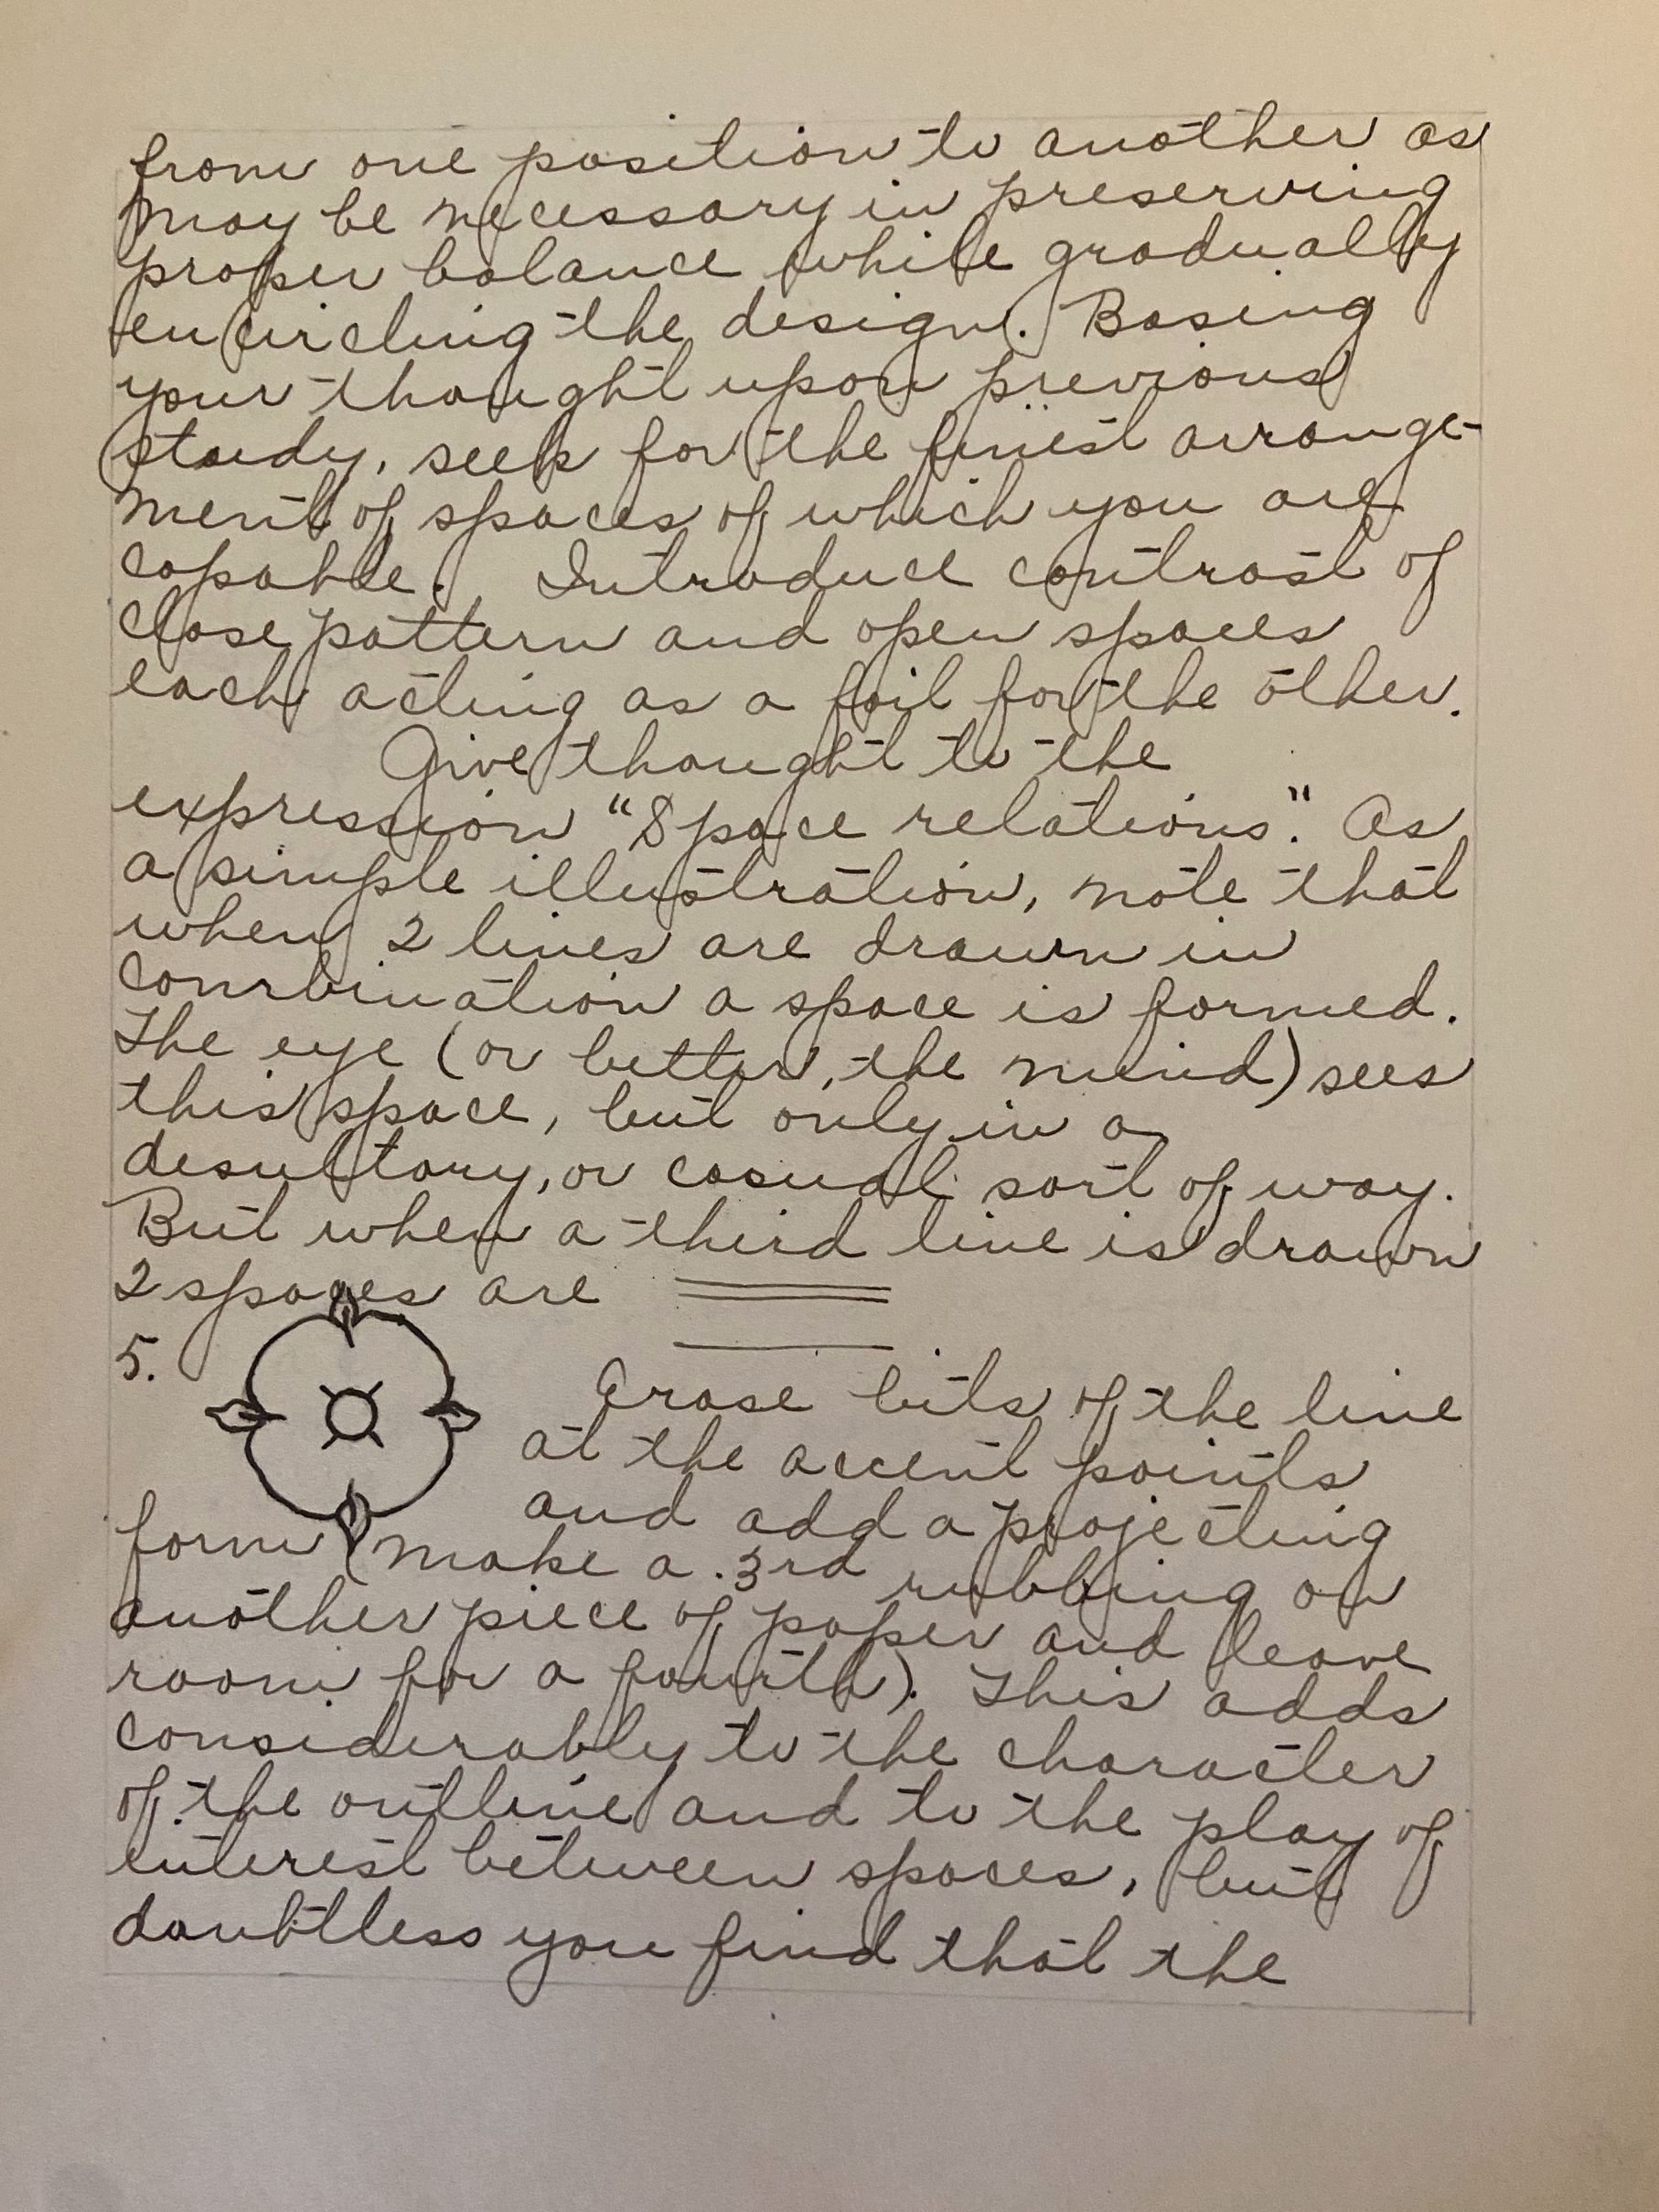 from one position to another as
may be necessary in preserving
proper balance while gradually
encircling the design. Basing
your thought upon previous
study, seek for the finest arrange-
ment of spaces of which you are
capable. Introduce contrast of
close pattern and open spaces
each acting as a foil for the other.
Give thought to the
expression "Space relations." As
a simple illustration, note that
when 2 lines are drawn in
combination a space is formed.
The eye (or better, the mind) sees
this space, but only in a
desultory, or casual sort of way.
But when a third line is drawn
2 spaces are
5.
Erase bits of the line
at the accent points
and add a projecting
form (make a 3rd rubbing on
another piece of paper and leave
room for a fourth). This adds
considerably to the character
of the outline and to the play of
interest between spaces, but
doubtless you find that the